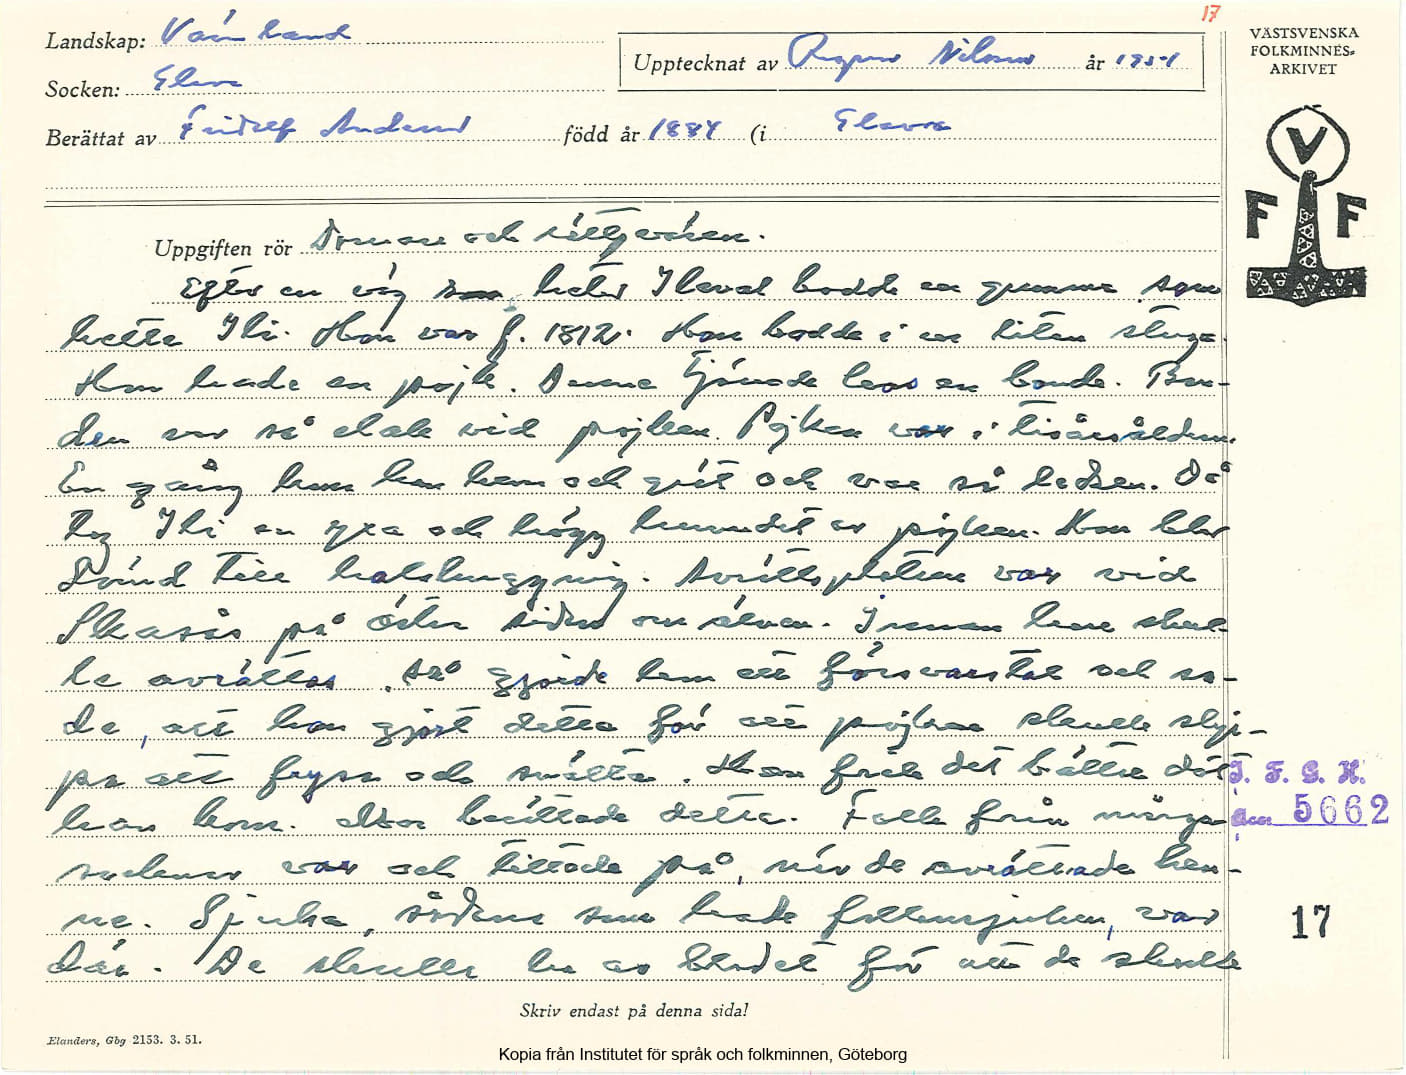 17
Landskap: Värmland
VÄSTSVENSKA
FOLKMINNES-
ARKIVET
Upptecknat av Ragnar Nilsson år 1951
Socken: Ekshärad
Berättat av Fridolf Anderson född år 1884 (i
V
F F
Uppgiften rör Domare och rättsväsen.
Efter en väg som heter bodde en gumma som
hette Ihi. Hon var f. 1812. Hon bodde i en liten stuga.
Hon hade en pojk. Denne tjänade hos en bonde. Bon-
den var så elak vid pojken. Pojken var i tioårsåldern.
En gång kom han hem och grät och var så ledsen. Då
tog Ihi en yxa och högg huvudet av pojken. Hon blev
dömd till halshuggning. Avrättsplatsen var vid
på östra sidan om älven. Innan hon skul-
le avrättas, så gjorde hon ett försvarstal och sa-
de, att hon gjort detta för att pojken skulle slip-
pa att frysa och svälta. Han fick det bättre dit
han kom. Mor berättade detta. Folk från många
socknar var och tittade på, när de avrättade hen-
ne. Sjuka, sådana som hade fallensjukan, var
där. De skulle ha av blodet för att de skulle
I. F. G. H.
5662
17
Skriv endast på denna sida!
Elanders, Gbg 2153. 3. 51.
Kopia från Institutet för språk och folkminnen, Göteborg